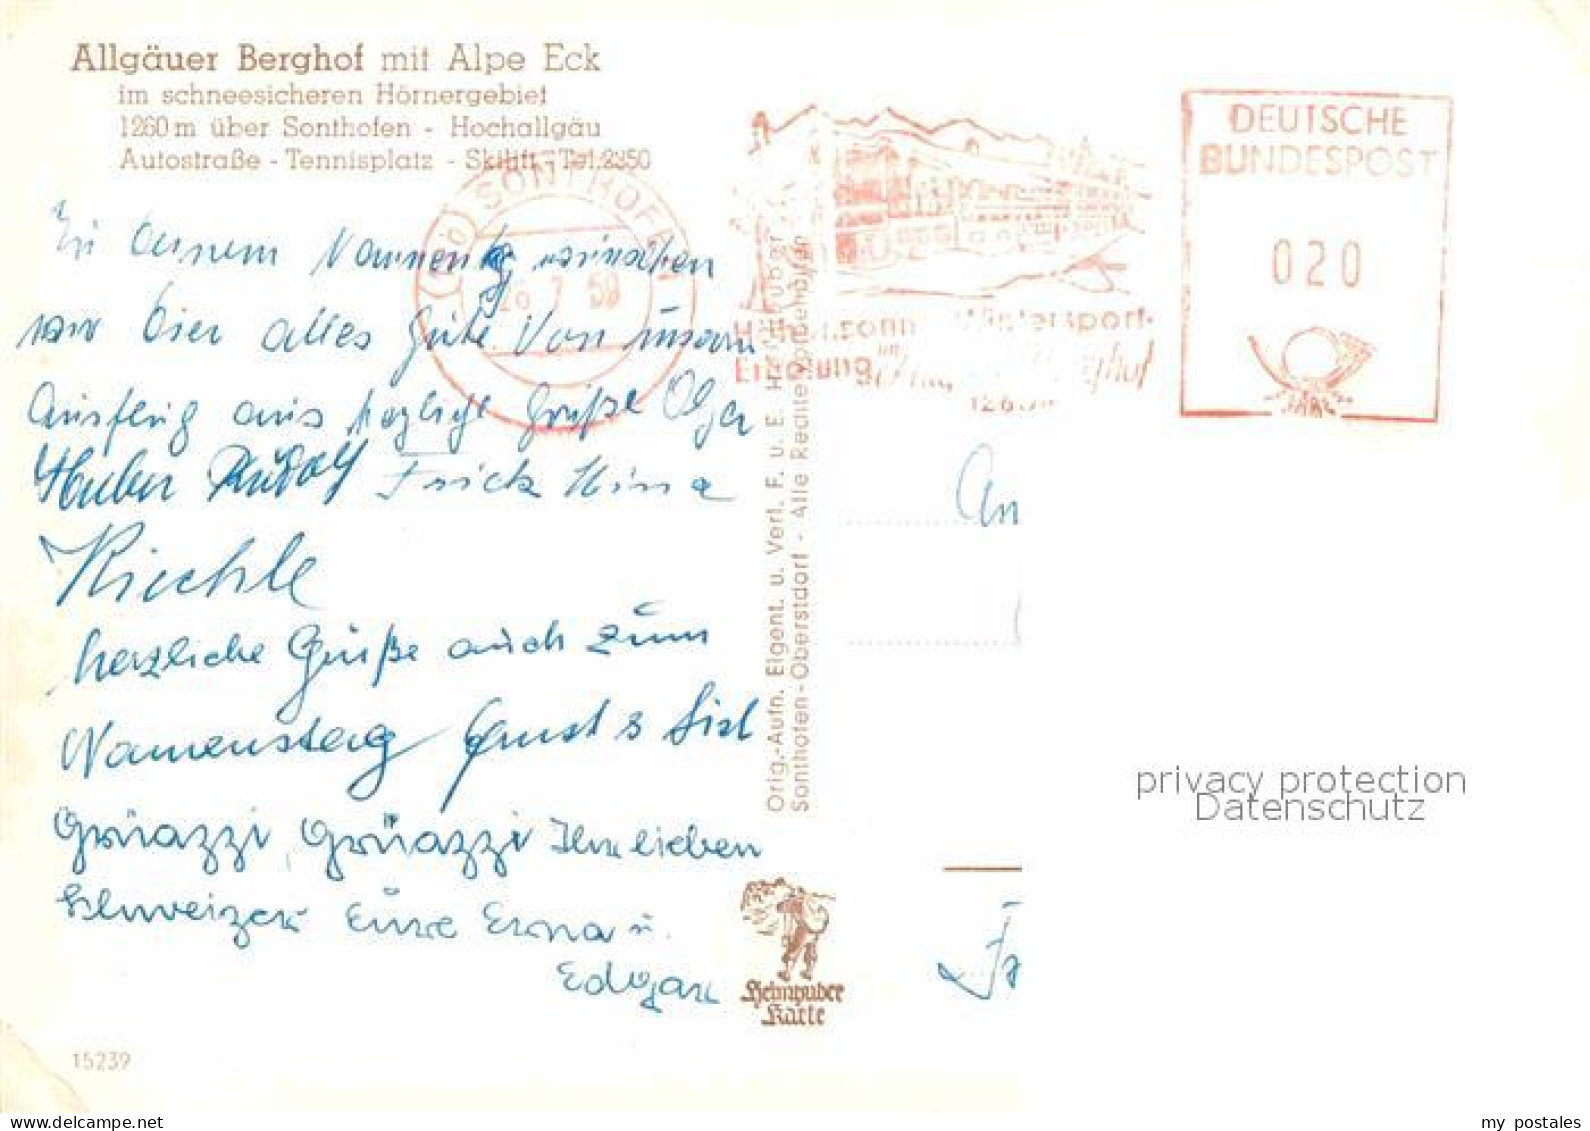 Allgäuer Berghof mit Alpe Eck
im schneesicheren Hörnergebiet
1260 m über Sonthofen - Hochallgäu
Autostraße - Tennisplatz - Skilift - Tel. 2350
SONTHOFEN
26.7.59
DEUTSCHE
BUNDESPOST
020
Wintersport-
im Berghof
Zu deinem Namenstg wünschen
wir Dier alles gute Von unserm
Ausflug aus herzliche Grüße Olga
Huber Rudolf Frick Mina
Riechle
herzliche Grüße auch zum
Namenstag Ernst & Lisl
Grüazzi, Grüazzi Ihr lieben
Schweizer Eure Erna u.
Edgar
Orig.-Aufn. Eigent. u. Verl. F. u. E. Heimhuber
Sonthofen-Oberstdorf - Alle Rechte vorbehalten
An
Heimhuber
Karte
15239
privacy protection
Datenschutz
my postales